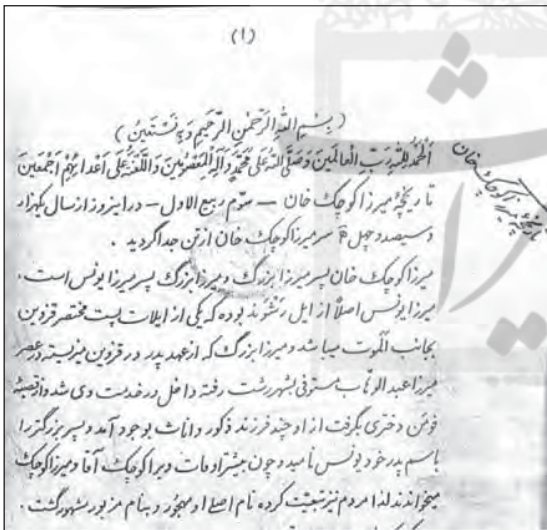 (۱)
(بِسْمِ اللّهِ الرَّحْمنِ الرَّحیمِ وَبِهِ نَسْتَعینُ)
اَلْحَمْدُ لِلّهِ رَبِّ الْعالَمینَ وَصَلَّی اللّهُ عَلی مُحَمَّدٍ وَآلِهِ الْمَعْصُومینَ وَاللَّعْنَةُ عَلی اَعْدائِهِمْ اَجْمَعینَ
تاریخچهٔ میرزا کوچک خان
تاریخچهٔ میرزا کوچک خان — سوّم ربیع الاول — در اینروز از سال یکهزار
و سیصد و چهل سر میرزا کوچک خان از تن جدا گردید .
میرزا کوچک خان پسر میرزا بزرگ و میرزا بزرگ پسر میرزا یونس است .
میرزا یونس اصلاً از ایل رشوند بوده که یکی از ایلات پست مختصر قزوین
بجانب الموت میباشد و میرزا بزرگ که از عهد پدر در قزوین میزیسته در عصر
میرزا عبد الوهاب مستوفی بشهر رشت رفته داخل در خدمت وی شد و از قصبهٔ
فومن دختری بگرفت از او چند فرزند ذکور و اناث بوجود آمد و پسر بزرگتر را
باسم پدر خود یونس نامید و چون بیشتر اوقات ویرا کوچک آقا و میرزا کوچک
میخواندند لذا مردم نیز تبعیّت کرده نام اصلی او مهجور و بنام مزبور مشهور گشت .